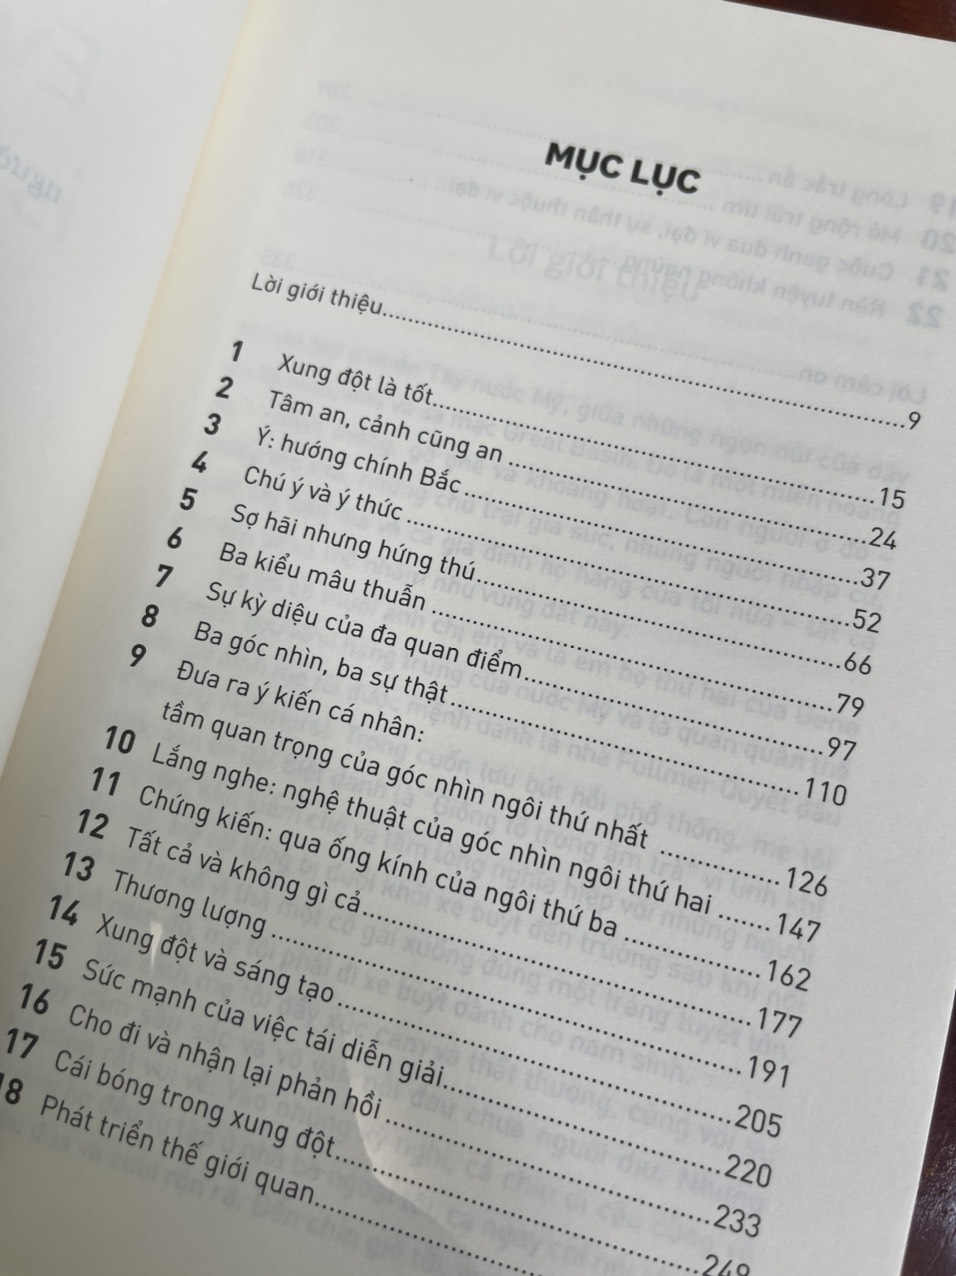 MỤC LỤC
Lời giới thiệu........................9
1 Xung đột là tốt........................15
2 Tâm an, cảnh cũng an........................24
3 Ý: hướng chính Bắc........................37
4 Chú ý và ý thức........................52
5 Sợ hãi nhưng hứng thú........................66
6 Ba kiểu mâu thuẫn........................79
7 Sự kỳ diệu của đa quan điểm........................97
8 Ba góc nhìn, ba sự thật........................110
9 Đưa ra ý kiến cá nhân:
tầm quan trọng của góc nhìn ngôi thứ nhất ...............126
10 Lắng nghe: nghệ thuật của góc nhìn ngôi thứ hai ......147
11 Chứng kiến: qua ống kính của ngôi thứ ba ...............162
12 Tất cả và không gì cả........................177
13 Thương lượng ........................191
14 Xung đột và sáng tạo........................205
15 Sức mạnh của việc tái diễn giải........................220
16 Cho đi và nhận lại phản hồi ........................233
17 Cái bóng trong xung đột........................249
18 Phát triển thế giới quan........................